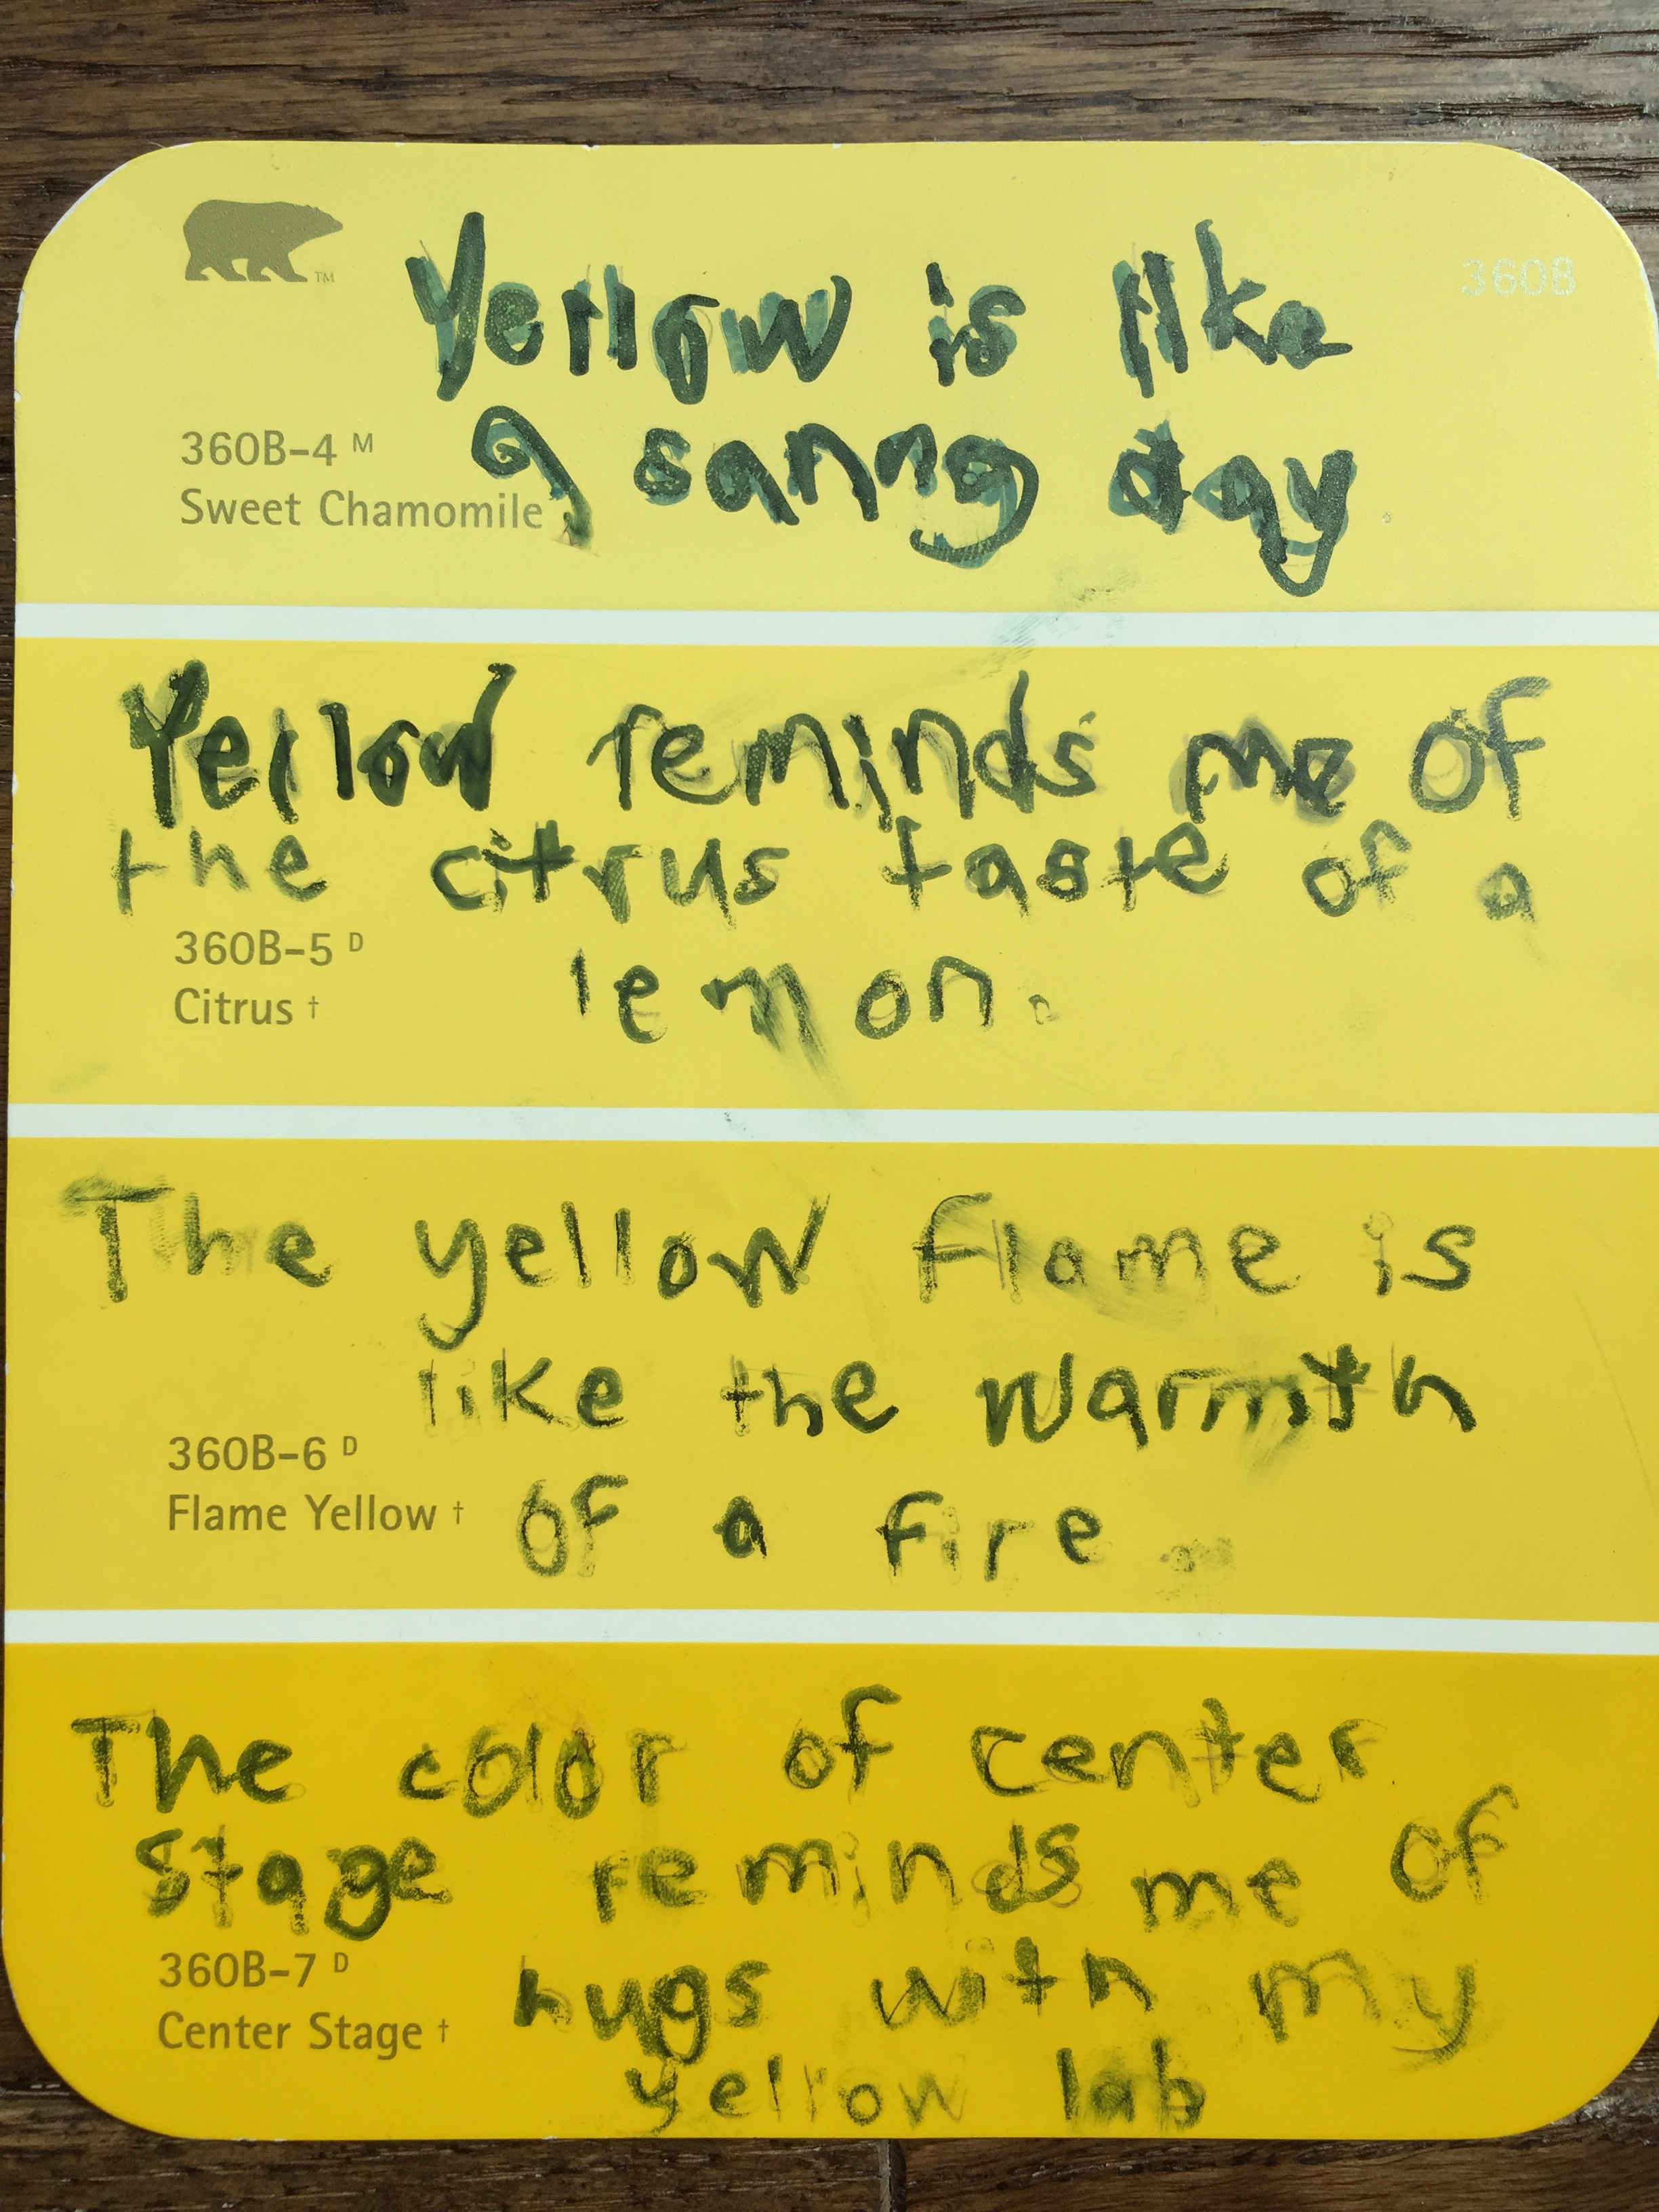 TM
Yellow is like
360B
a sanny day
360B-4 M
Sweet Chamomile
Yellow reminds me of
the citrus taste of a
360B-5 D
lemon.
Citrus †
The yellow flame is
like the warmth
360B-6 D
Flame Yellow †
of a fire.
The color of center
stage reminds me of
360B-7 D
hugs with my
Center Stage †
yellow lab